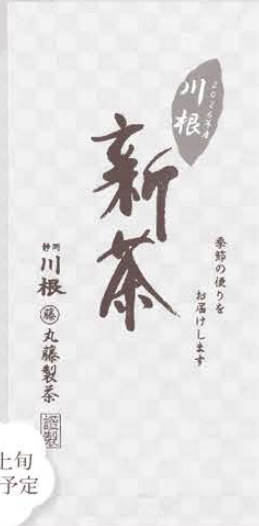 川根
2026年産
新茶
季節の便りを
お届けします
静岡
川根
藤 丸藤製茶
謹製
上旬
予定